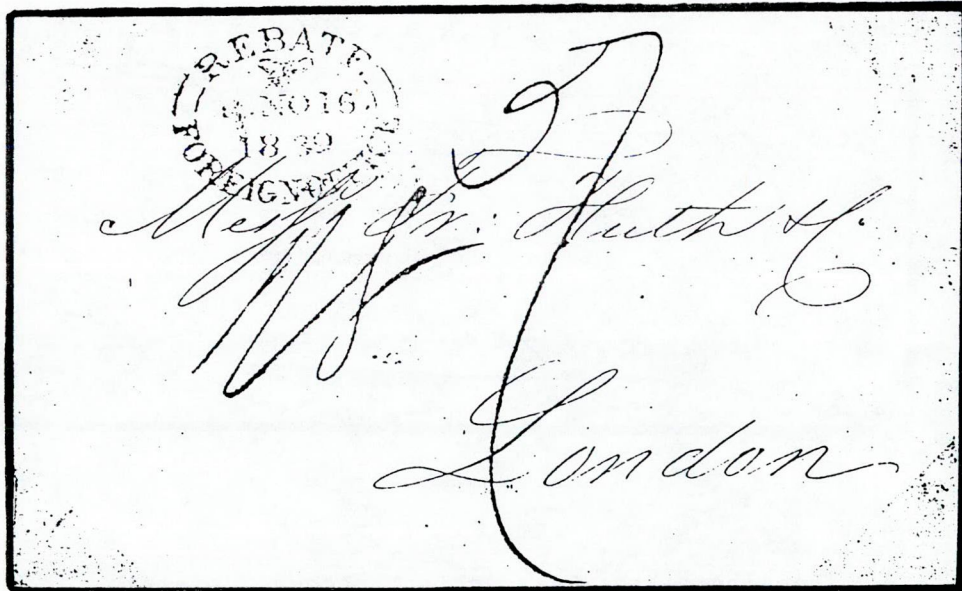 REBATE
NO 16
1839
FOREIGN OFFICE
Messrs Fr: Huth & Co.
London